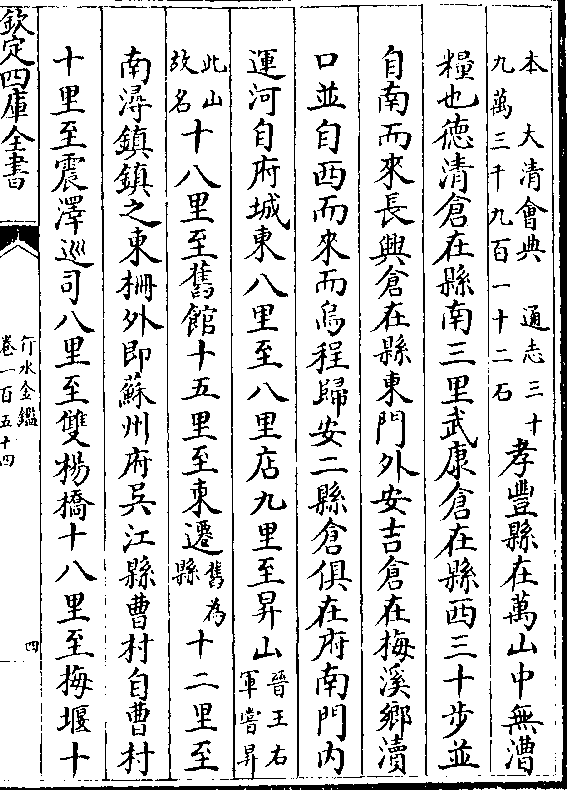 本　大清會典　通志三十
九萬三千九百一十二石
孝豐縣在萬山中無漕
糧也德清倉在縣南三里武康倉在縣西三十步並
自南而來長興倉在縣東門外安吉倉在梅溪鄉瀆
口並自西而來而烏程歸安二縣倉俱在府南門內
運河自府城東八里至八里店九里至昇山
晉王右
軍嘗昇
此山
故名
十八里至舊館十五里至東遷
舊為
縣
十二里至
南潯鎮鎮之東柵外即蘇州府吳江縣曹村自曹村
十里至震澤巡司八里至雙楊橋十八里至梅堰十
欽定四庫全書
行水金鑑
卷一百五十四
四